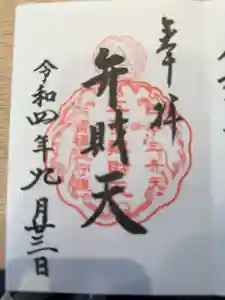 奉拝
弁財天
令和四年九月廿三日